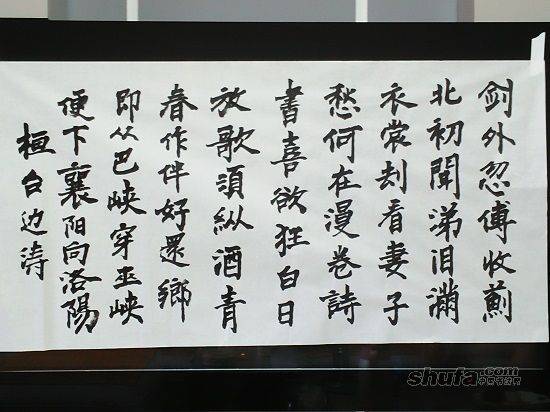 剑外忽傅收薊
北初聞涕泪满
衣裳刦看妻子
愁何在漫卷詩
書喜欲狂白日
放歌須纵酒青
春作伴好還鄉
即从巴峡穿巫峡
便下襄阳向洛陽
桓台边涛
shufa.com